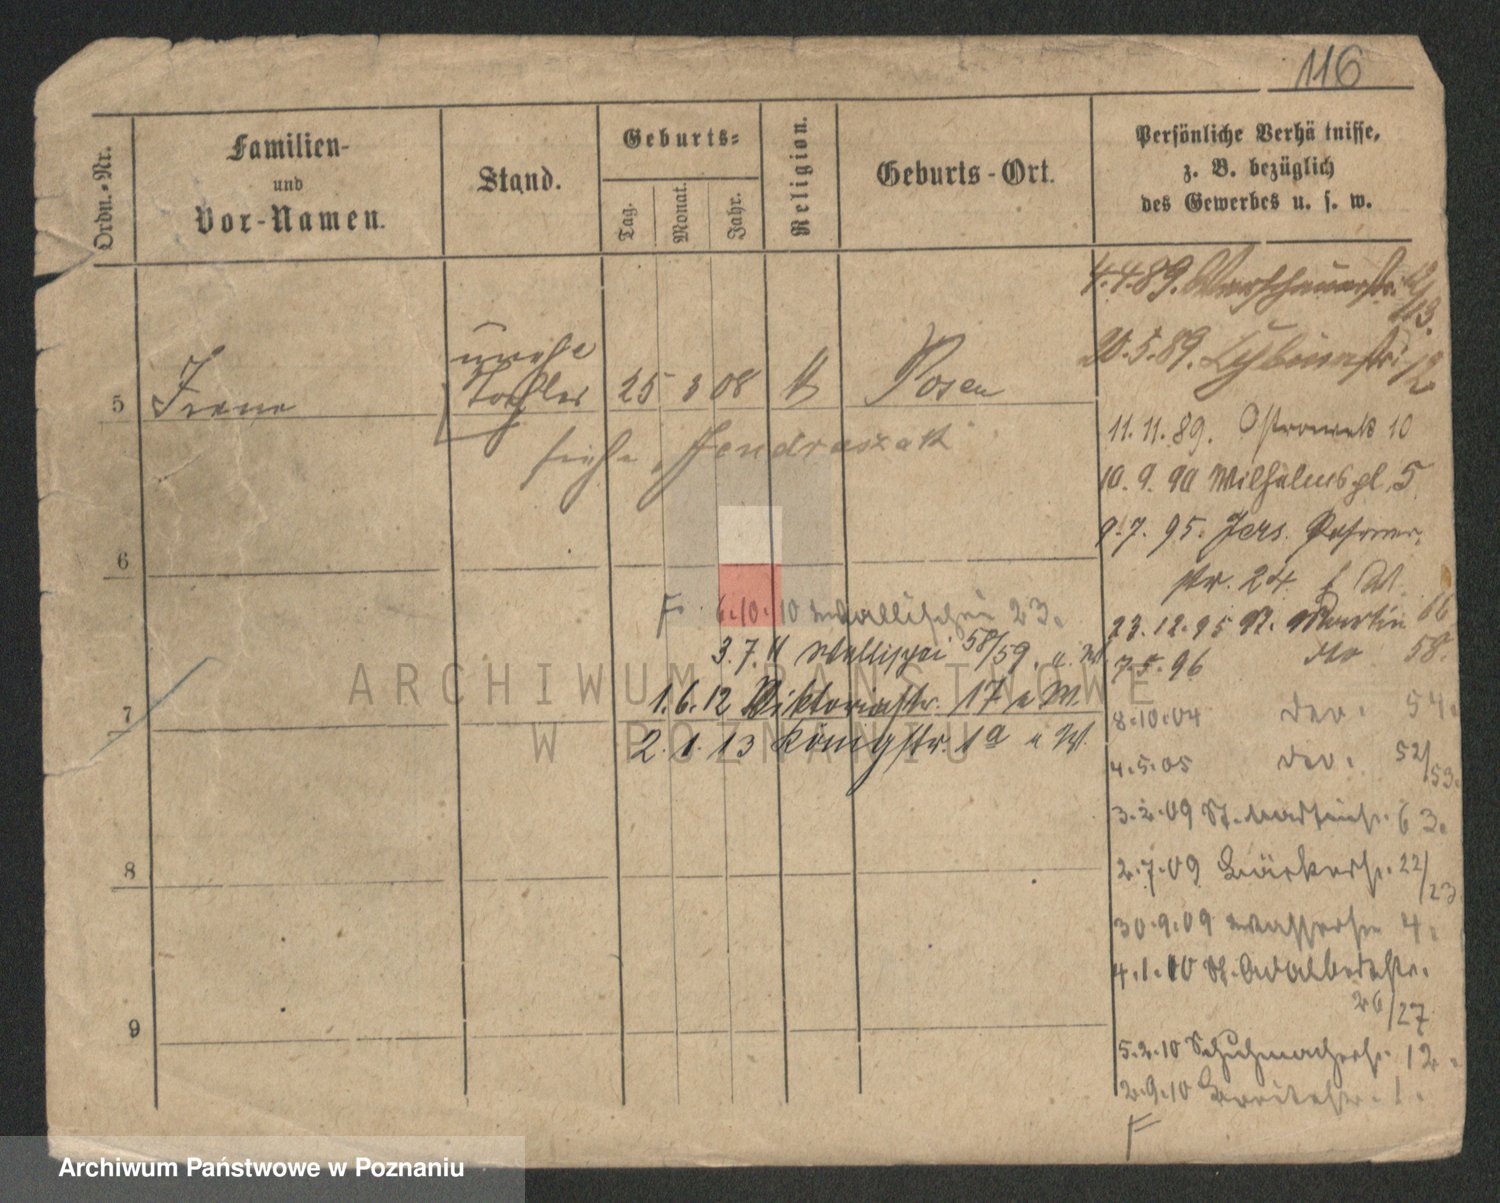 116
Ordn.-Nr.
Familien-
und
Vor-Namen.
Stand.
Geburts-
Tag.
Monat.
Jahr.
Religion.
Geburts-Ort.
Persönliche Verhä tnisse,
z. B. bezüglich
des Gewerbes u. s. w.
4.4.89. Warschauerstr.
113.
20.5.89.
unehe
5 Irene Tochter 25 3 08 Posen
siehe Jendraszak
11.11.89. Ostrowek 10
10.9.90 Wilhelmspl. 5
9.7.95. Jers. Posener
str. 24
6
F. 6.10.10 Wallischei 23.
23.12.95 St. Martin 66
3.7.11 Wallischei 58/59. u. W.
7.5.96 dto 58.
1.6.12 Viktoriastr. 17 u W.
7
8.10.04 der. 54.
2.1.13 Königstr. 1a u W.
4.5.05 der. 52/53.
3.2.09 St. Martinstr. 63.
2.7.09 Bäckerstr. 22/23.
8
30.9.09 Wasserstr 4.
4.1.10 St. Adalbertstr.
26/27
9
5.2.10 Schuhmacherstr. 12.
2.9.10 Breitestr. 1.
F
ARCHIWUM PAŃSTWOWE
W POZNANIU
Archiwum Państwowe w Poznaniu